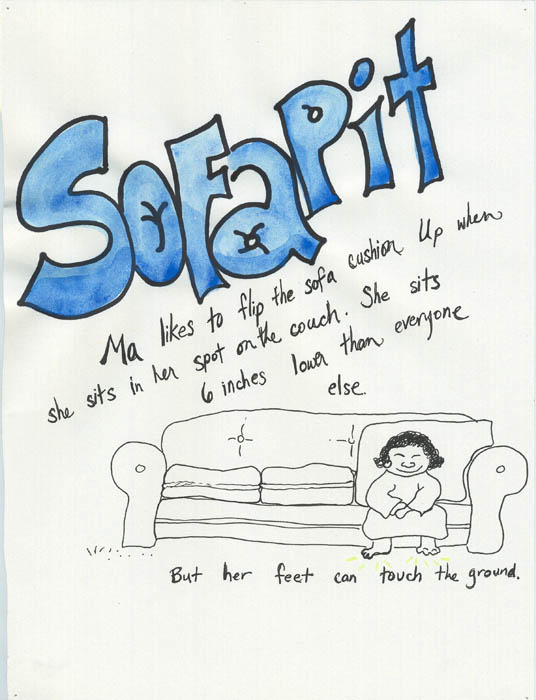 SofaPit
Ma likes to flip the sofa cushion Up when
she sits in her spot on the couch. She sits
6 inches lower than everyone
else.
But her feet can touch the ground.